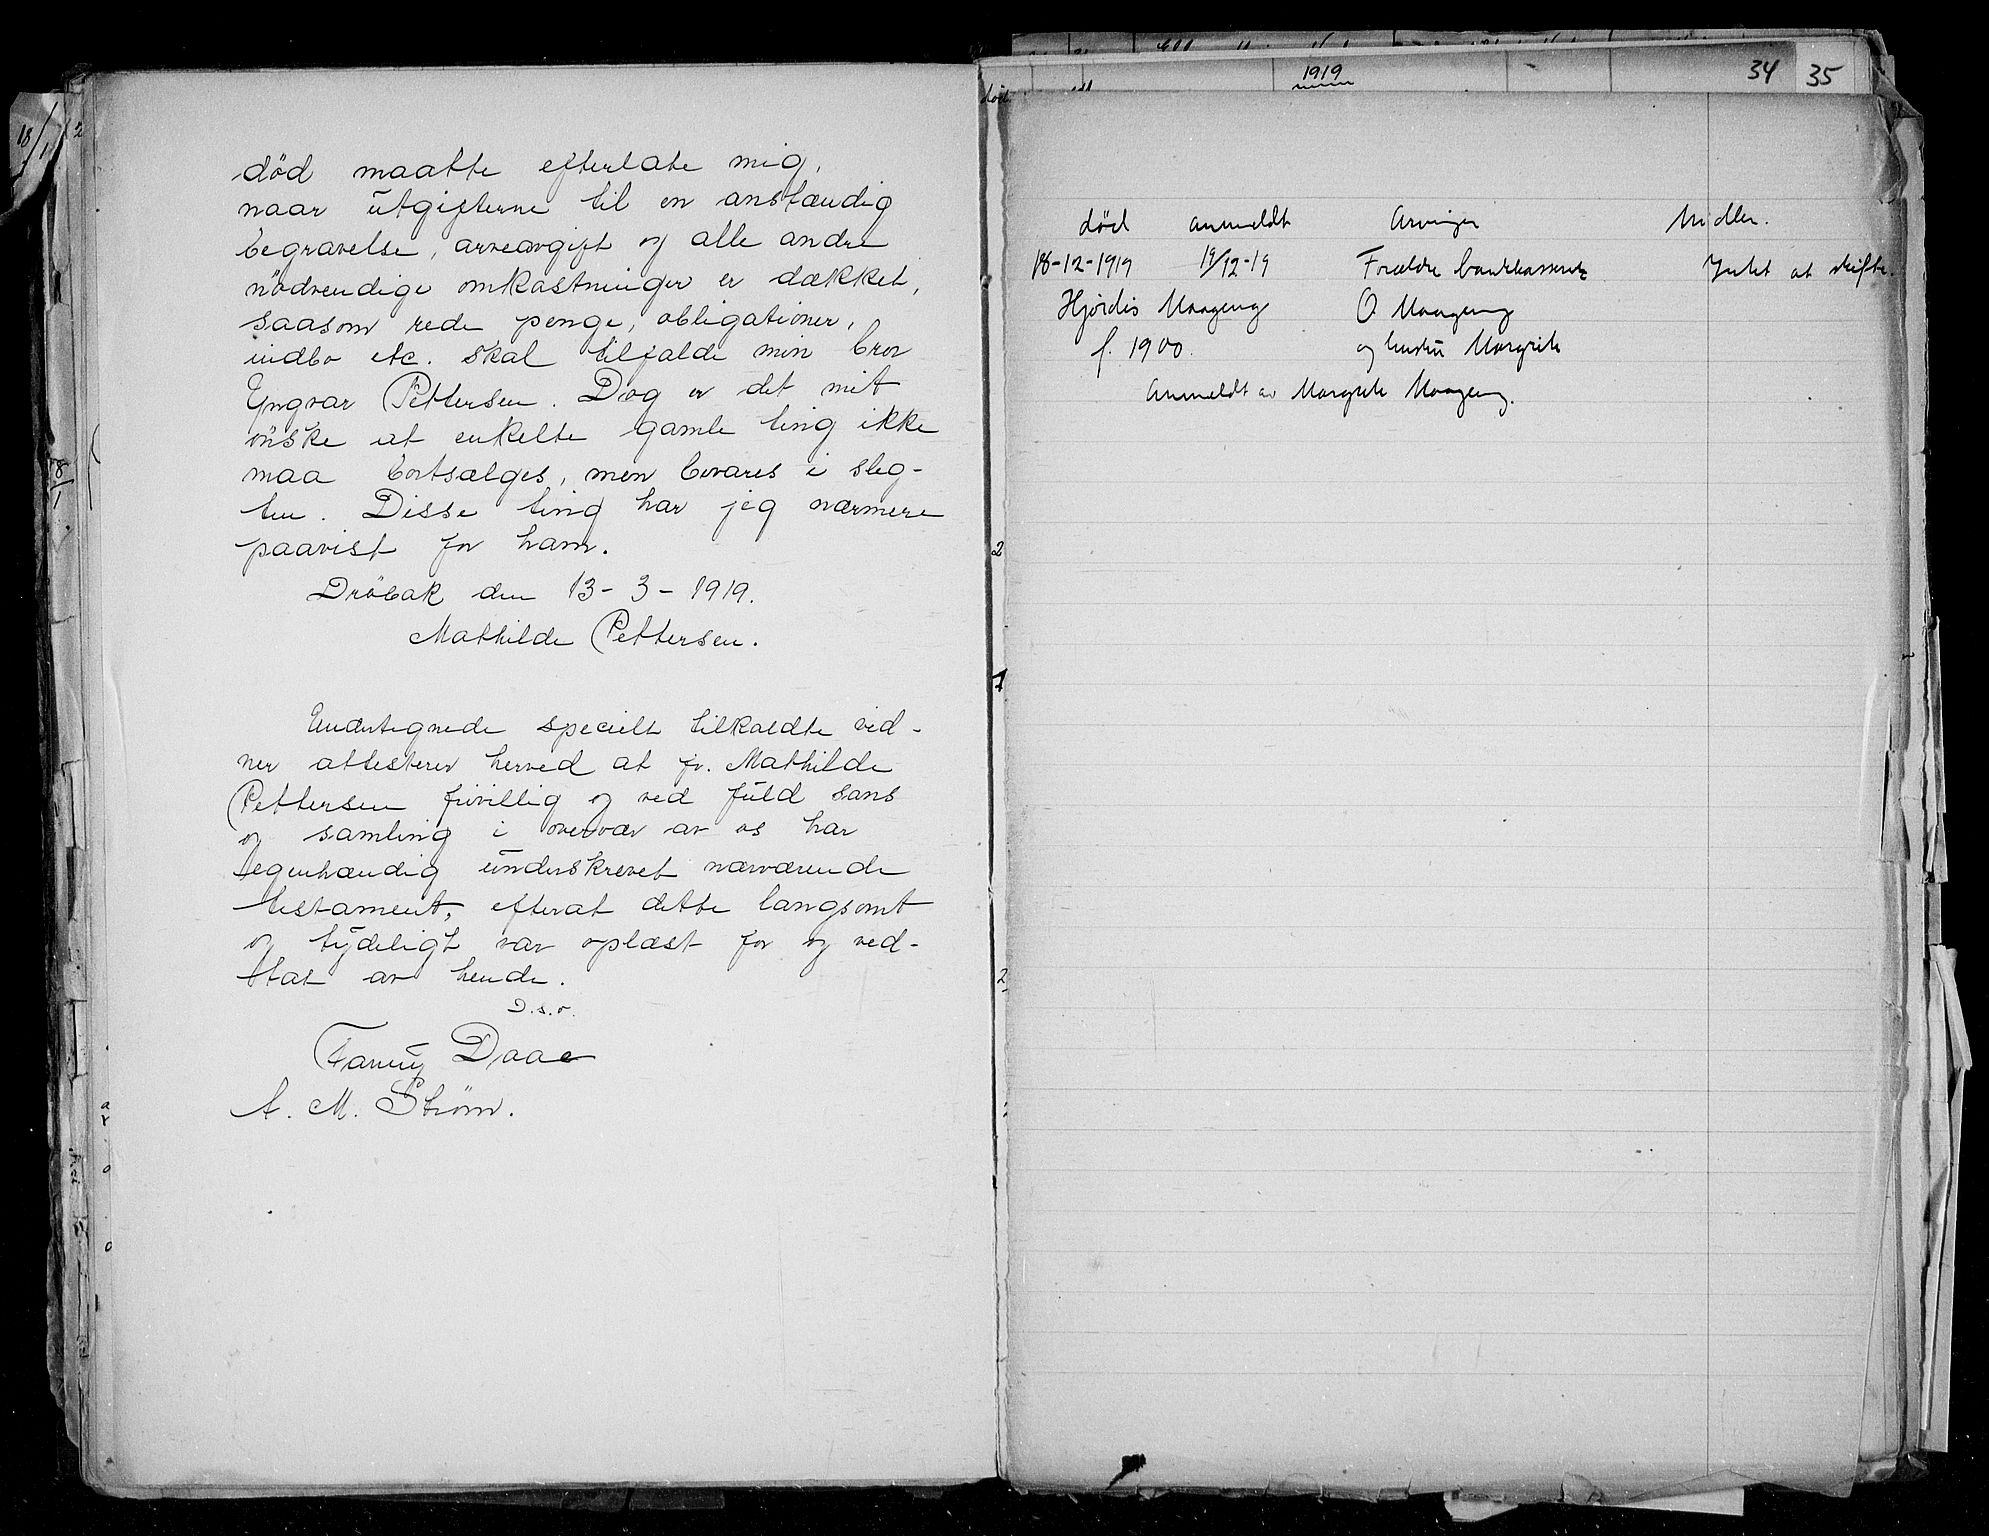 død maatte efterlate mig,
naar utgifterne til en anstændig
begravelse, arveavgift og alle andre
nödvendige omkostninger er dækket,
saasom rede penge, obligationer,
indbo etc. skal tilfalde min bror
Yngvar Pettersen. Dog er det mit
önske at enkelte gamle ting ikke
maa bortsælges, men bevares i sleg-
ten. Disse ting har jeg nærmere
paavist for ham.
Dröbak den 13-3-1919.
Mathilde Pettersen.
Undertegnede specielt tilkaldte vid-
ner attesterer herved at fr. Mathilde
Pettersen frivillig og ved fuld sans
og samling i overvær av os har
egenhændig underskrevet nærværende
testament, efterat dette langsomt
og tydeligt var oplæst for og ved-
tat av hende.
D.s.o.
Fanny Daae
A. M. Ström.
1919
34 35
død anmeldt Arvinger Midler.
18-12-1919 19/12-19 Forældre bankkasserer Intet at skifte.
Hjördis Maageng O. Maageng
f. 1900. og hustru Margrete
Anmeldt av Margrete Maageng.